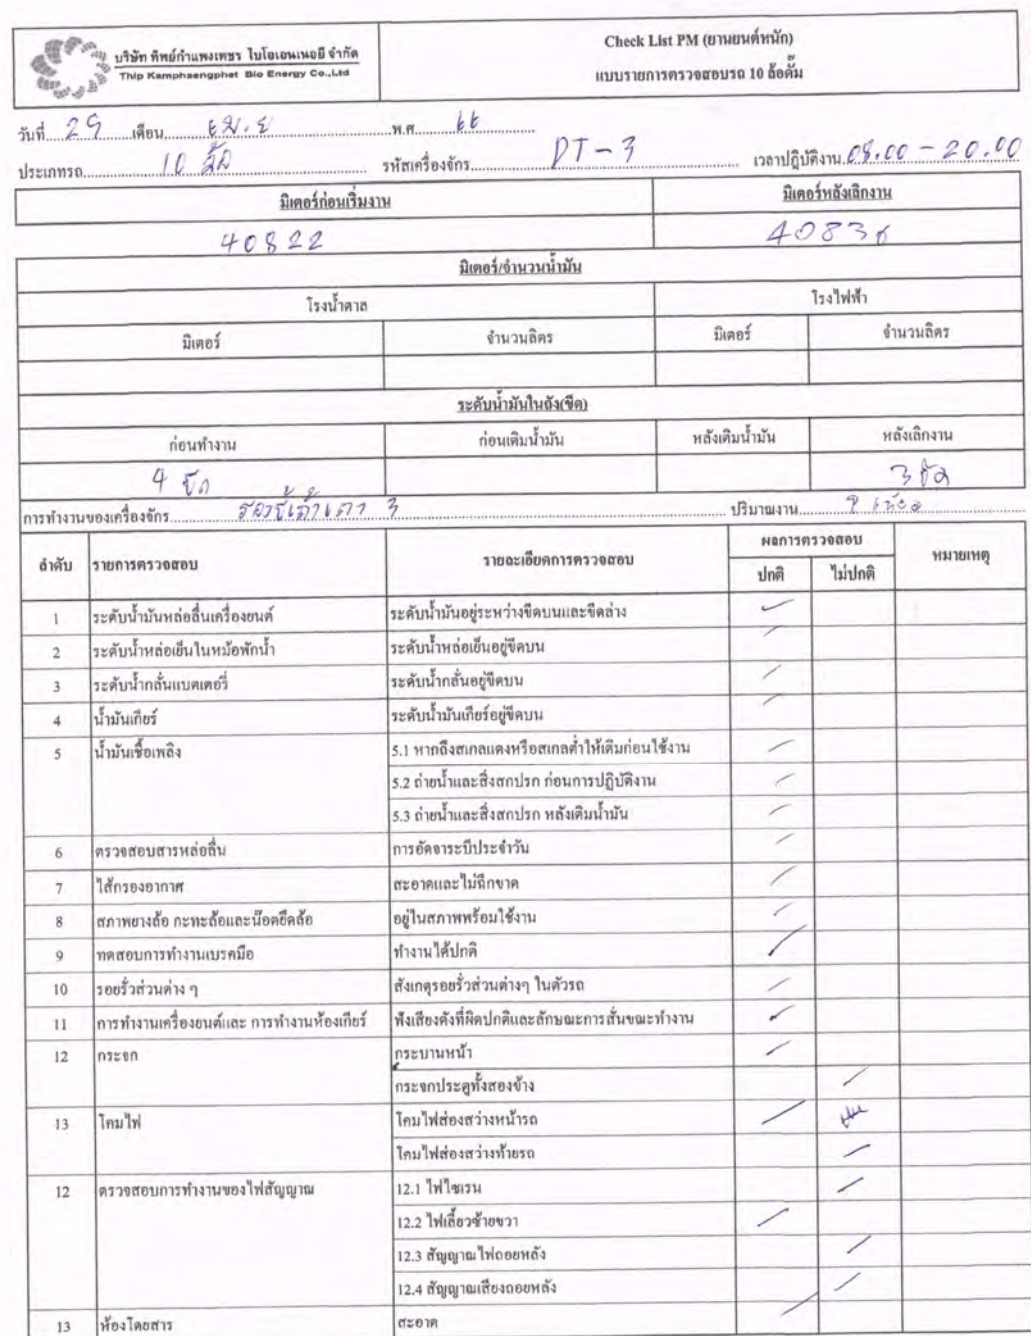 บริษัท ทิพย์กำแพงเพชร ไบโอเอนเนอยี จำกัด
Thip Kamphaengphet Bio Energy Co.,Ltd
Check List PM (ยานยนต์หนัก)
แบบรายการตรวจสอบรถ 10 ล้อดั๊ม
วันที่ 29 เดือน เม.ย พ.ศ. 66
ประเภทรถ 10 ล้อ รหัสเครื่องจักร DT-3 เวลาปฏิบัติงาน 08.00 - 20.00
มิเตอร์ก่อนเริ่มงาน มิเตอร์หลังเลิกงาน
40822 40836
มิเตอร์/จำนวนน้ำมัน
โรงน้ำตาล โรงไฟฟ้า
มิเตอร์ จำนวนลิตร มิเตอร์ จำนวนลิตร
ระดับน้ำมันในถัง(ขีด)
ก่อนทำงาน ก่อนเติมน้ำมัน หลังเติมน้ำมัน หลังเลิกงาน
4 ขีด 3 ขีด
การทำงานของเครื่องจักร รองขี้เถ้าเตา 3 ปริมาณงาน
ลำดับ รายการตรวจสอบ รายละเอียดการตรวจสอบ ผลการตรวจสอบ หมายเหตุ
ปกติ ไม่ปกติ
1 ระดับน้ำมันหล่อลื่นเครื่องยนต์ ระดับน้ำมันอยู่ระหว่างขีดบนและขีดล่าง
2 ระดับน้ำหล่อเย็นในหม้อพักน้ำ ระดับน้ำหล่อเย็นอยู่ขีดบน
3 ระดับน้ำกลั่นแบตเตอรี่ ระดับน้ำกลั่นอยู่ขีดบน
4 น้ำมันเกียร์ ระดับน้ำมันเกียร์อยู่ขีดบน
5 น้ำมันเชื้อเพลิง 5.1 หากถึงสเกลแดงหรือสเกลต่ำให้เติมก่อนใช้งาน
5.2 ถ่ายน้ำและสิ่งสกปรก ก่อนการปฏิบัติงาน
5.3 ถ่ายน้ำและสิ่งสกปรก หลังเติมน้ำมัน
6 ตรวจสอบสารหล่อลื่น การอัดจาระบีประจำวัน
7 ไส้กรองอากาศ สะอาดและไม่ฉีกขาด
8 สภาพยางล้อ กะทะล้อและน๊อตยึดล้อ อยู่ในสภาพพร้อมใช้งาน
9 ทดสอบการทำงานเบรคมือ ทำงานได้ปกติ
10 รอยรั่วส่วนต่าง ๆ สังเกตุรอยรั่วส่วนต่างๆ ในตัวรถ
11 การทำงานเครื่องยนต์และ การทำงานห้องเกียร์ ฟังเสียงดังที่ผิดปกติและลักษณะการสั่นขณะทำงาน
12 กระจก กระบานหน้า
กระจกประตูทั้งสองข้าง
13 โคมไฟ โคมไฟส่องสว่างหน้ารถ
โคมไฟส่องสว่างท้ายรถ
12 ตรวจสอบการทำงานของไฟสัญญาณ 12.1 ไฟไซเรน
12.2 ไฟเลี้ยวซ้ายขวา
12.3 สัญญาณไฟถอยหลัง
12.4 สัญญาณเสียงถอยหลัง
13 ห้องโดยสาร สะอาด